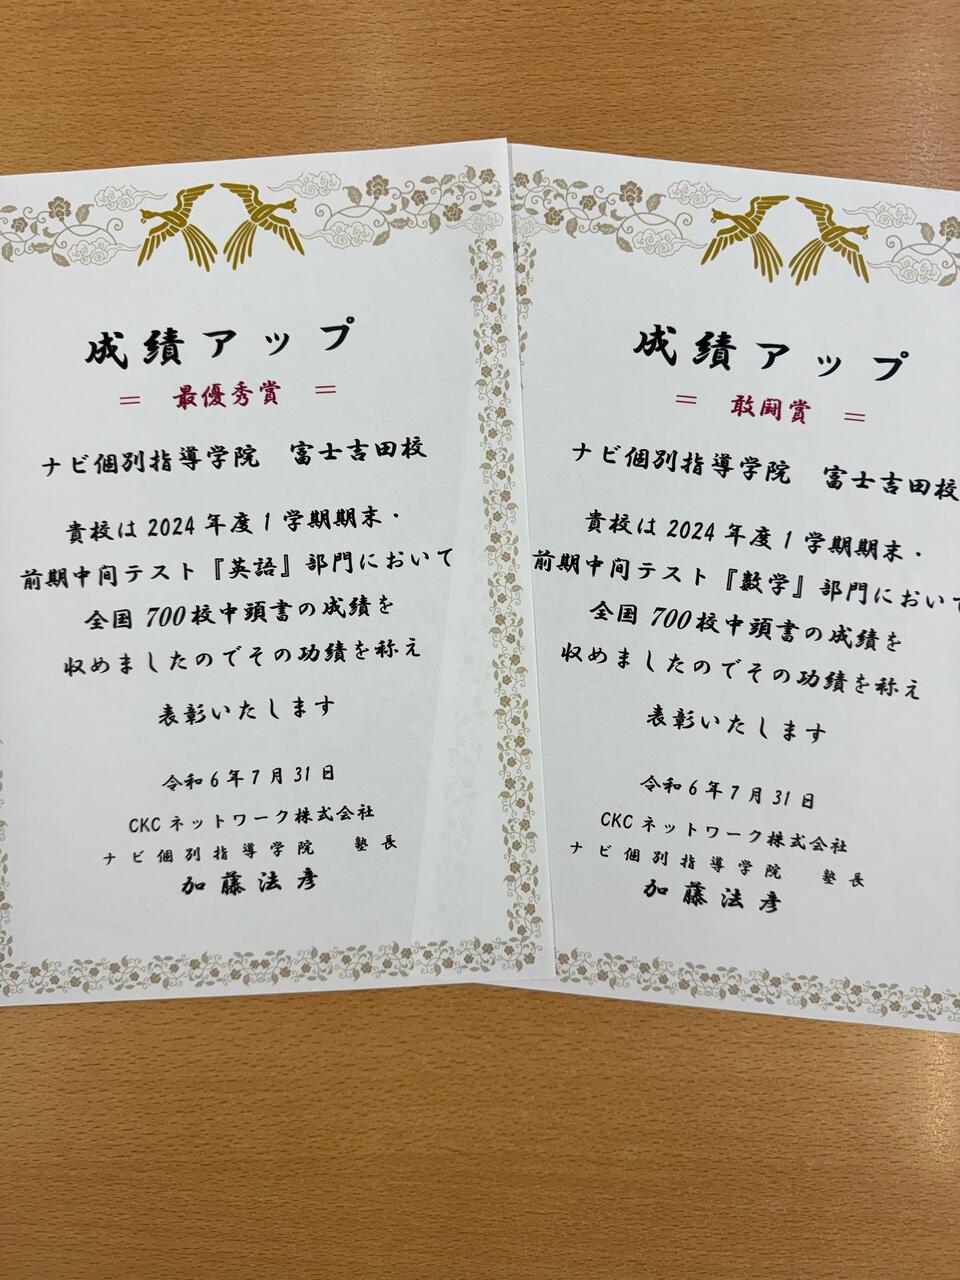 成績アップ
＝ 最優秀賞 ＝
ナビ個別指導学院 富士吉田校
貴校は2024年度1学期期末・
前期中間テスト『英語』部門において
全国700校中頭書の成績を
収めましたのでその功績を称え
表彰いたします
令和6年7月31日
CKCネットワーク株式会社
ナビ個別指導学院 塾長
加藤法彦
成績アップ
＝ 敢闘賞 ＝
ナビ個別指導学院 富士吉田校
貴校は2024年度1学期期末・
前期中間テスト『数学』部門において
全国700校中頭書の成績を
収めましたのでその功績を称え
表彰いたします
令和6年7月31日
CKCネットワーク株式会社
ナビ個別指導学院 塾長
加藤法彦